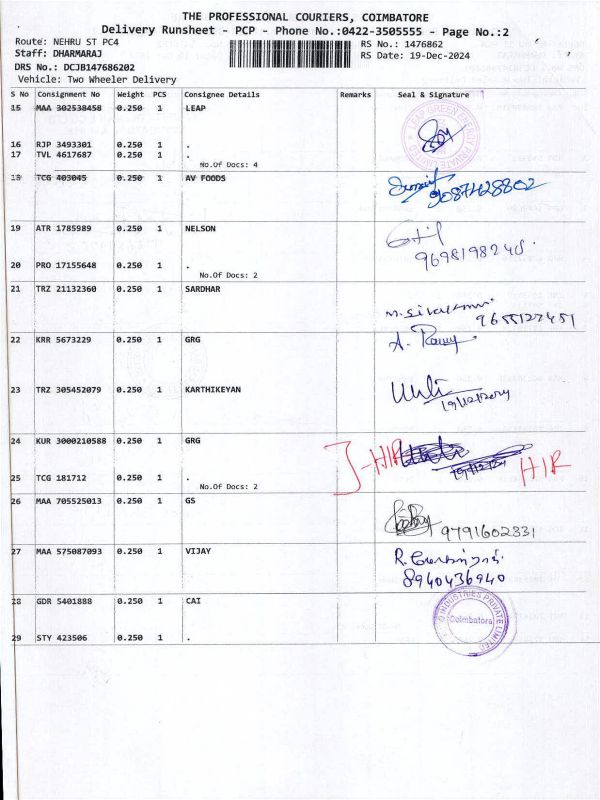 THE PROFESSIONAL COURIERS, COIMBATORE
Delivery Runsheet - PCP - Phone No.:0422-3505555 - Page No.:2
Route: NEHRU ST PC4 RS No.: 1476862
Staff: DHARMARAJ RS Date: 19-Dec-2024
DRS No.: DCJB147686202
Vehicle: Two Wheeler Delivery
S No Consignment No Weight PCS Consignee Details Remarks Seal & Signature
15 MAA 302538458 0.250 1 LEAP
LEAP GREEN ENERGY PRIVATE LIMITED
16 RJP 3493301 0.250 1 .
17 TVL 4617687 0.250 1 .
No.Of Docs: 4
18 TCG 403045 0.250 1 AV FOODS
9087428802
19 ATR 1785989 0.250 1 NELSON
9698198240
20 PRO 17155648 0.250 1 .
No.Of Docs: 2
21 TRZ 21132360 0.250 1 SARDHAR
M. Sivakumar
9655127451
22 KRR 5673229 0.250 1 GRG
23 TRZ 305452079 0.250 1 KARTHIKEYAN
19/12/2024
24 KUR 3000210588 0.250 1 GRG
J-HIR
19/12/24
HIR
25 TCG 181712 0.250 1 .
No.Of Docs: 2
26 MAA 705525013 0.250 1 GS
9791602331
27 MAA 575087093 0.250 1 VIJAY
8940436940
28 GDR 5401888 0.250 1 CAI
INDUSTRIES PRIVATE LIMITED
Coimbatore
29 STY 423506 0.250 1 .